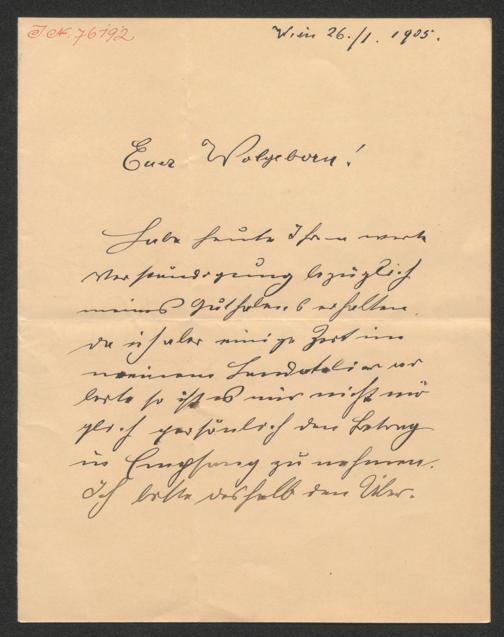 I.N. 76192
Wien 26./1. 1905.
Euer Wolgeboren!
Habe heute Ihre werte
Verständigung bezüglich
meines Guthabens erhalten.
da ich aber einige Zeit in
meinem Landatelier ar
beite so ist es mir nicht mö
glich persönlich den Betrag
in Empfang zu nehmen.
Ich bitte deshalb den Über-